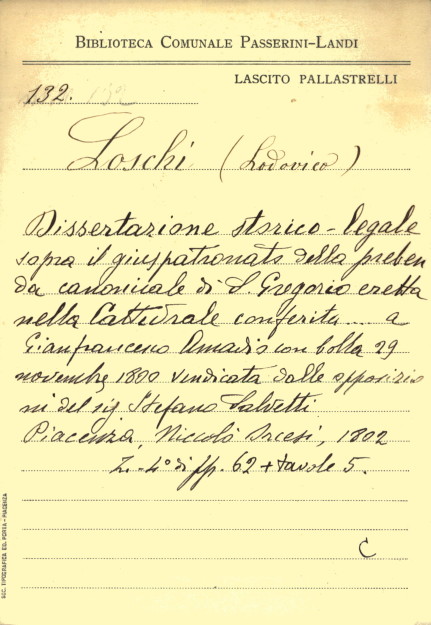 BIBLIOTECA COMUNALE PASSERINI-LANDI
LASCITO PALLASTRELLI
132. 132
Loschi (Lodovico)
Dissertazione storico-legale
sopra il giuspatronato della preben
da canonicale di S. Gregorio eretta
nella Cattedrale conferita ... a
Gianfrancesco Amadio con bolla 29
novembre 1800 vendicata dalle opposizio
ni del sig. Stefano Salvetti
Piacenza, Niccolò Orcesi, 1802
in-4° di pp. 62 + tavole 5.
C
SOC. TIPOGRAFICA ED. PORTA - PIACENZA